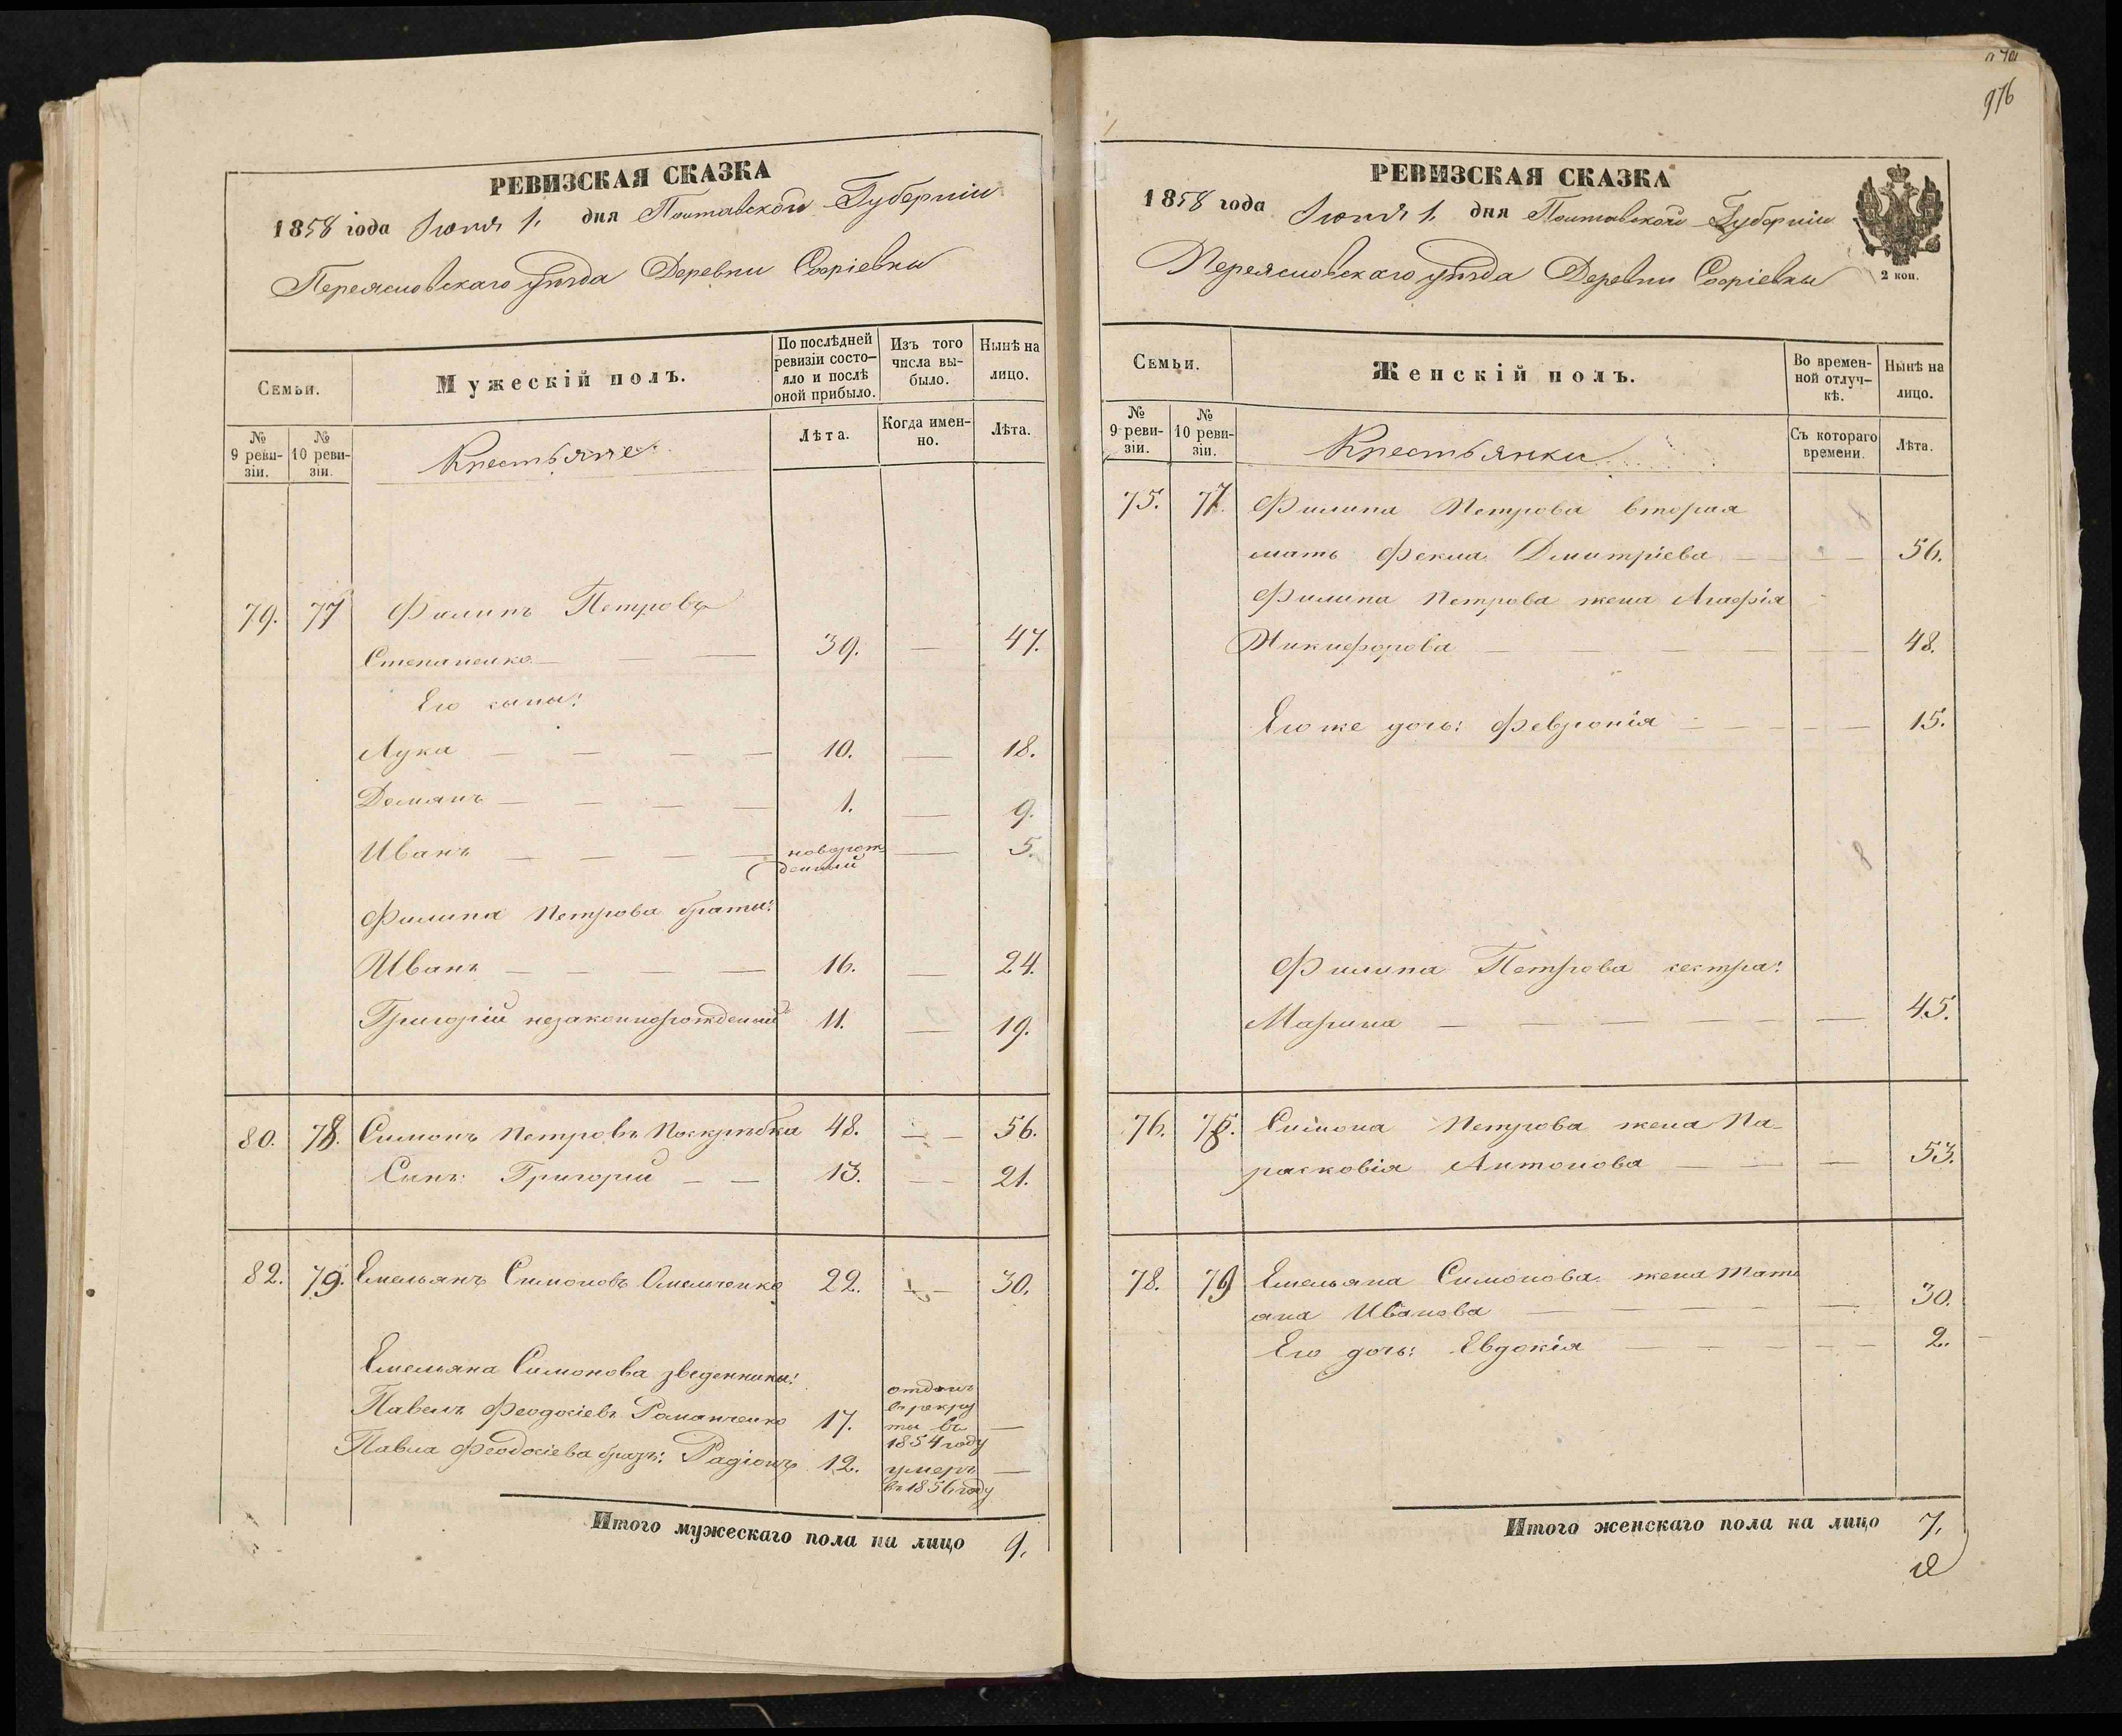 976
РЕВИЗСКАЯ СКАЗКА
1858 года Іюня 1. дня Полтавской Губерніи
Переясловскаго уѣзда Деревни Софіевки
Семьи.
Мужескій полъ.
По послѣдней ревизіи состояло и послѣ оной прибыло.
Изъ того числа выбыло.
Нынѣ на лицо.
№ 9 ревизіи.
№ 10 ревизіи.
Крестьяне
Лѣта.
Когда именно.
Лѣта.
79. 77 Филипъ Петровъ
Степаненко — — — 39. — 47.
Его сыны:
Лука — — — — 10. — 18.
Демянъ — — — — 1. — 9.
Иванъ — — — — новорожденный — 5.
Филипа Петрова браты:
Иванъ — — — — 16. — 24.
Григорій незаконнорожденный 11. — 19.
80. 78. Симонъ Петровъ Поскрыбка 48. — — 56.
Сынъ: Григорій — — 13. — — 21.
82. 79. Емельянъ Симоновъ Омельченко 22. — 30.
Емельяна Симонова зведенники:
Павелъ Феодосіевъ Романченко 17. отданъ въ рекруты въ 1854 году —
Павла Феодосіева братъ: Радіонъ 12. умеръ въ 1856 году —
Итого мужескаго пола на лицо 9.
РЕВИЗСКАЯ СКАЗКА
1858 года Іюня 1. дня Полтавской Губерніи
Переясловскаго уѣзда Деревни Софіевки
2 коп.
Семьи.
Женскій полъ.
Во временной отлучкѣ.
Нынѣ на лицо.
№ 9 ревизіи.
№ 10 ревизіи.
Крестьянки
Съ котораго времени.
Лѣта.
75. 77. Филипа Петрова вторая
мать Фекла Дмитріева — — — 56.
Филипа Петрова жена Агафія
Никифорова — — — — — 48.
Его же дочь: Февронія — — — — 15.
Филипа Петрова сестра:
Марина — — — — — — 45.
76. 78. Симона Петрова жена Па-
расковія Антонова — — — 53.
78. 79 Емельяна Симонова жена Тать
яна Иванова — — — — 30.
Его дочь: Евдокія — — — — — 2.
Итого женскаго пола на лицо 7.